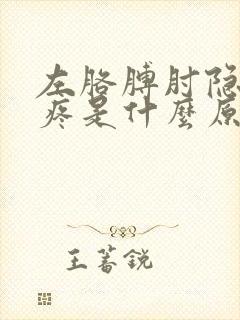 左胳膊肘隐
疼是什麽原
王蕃锐